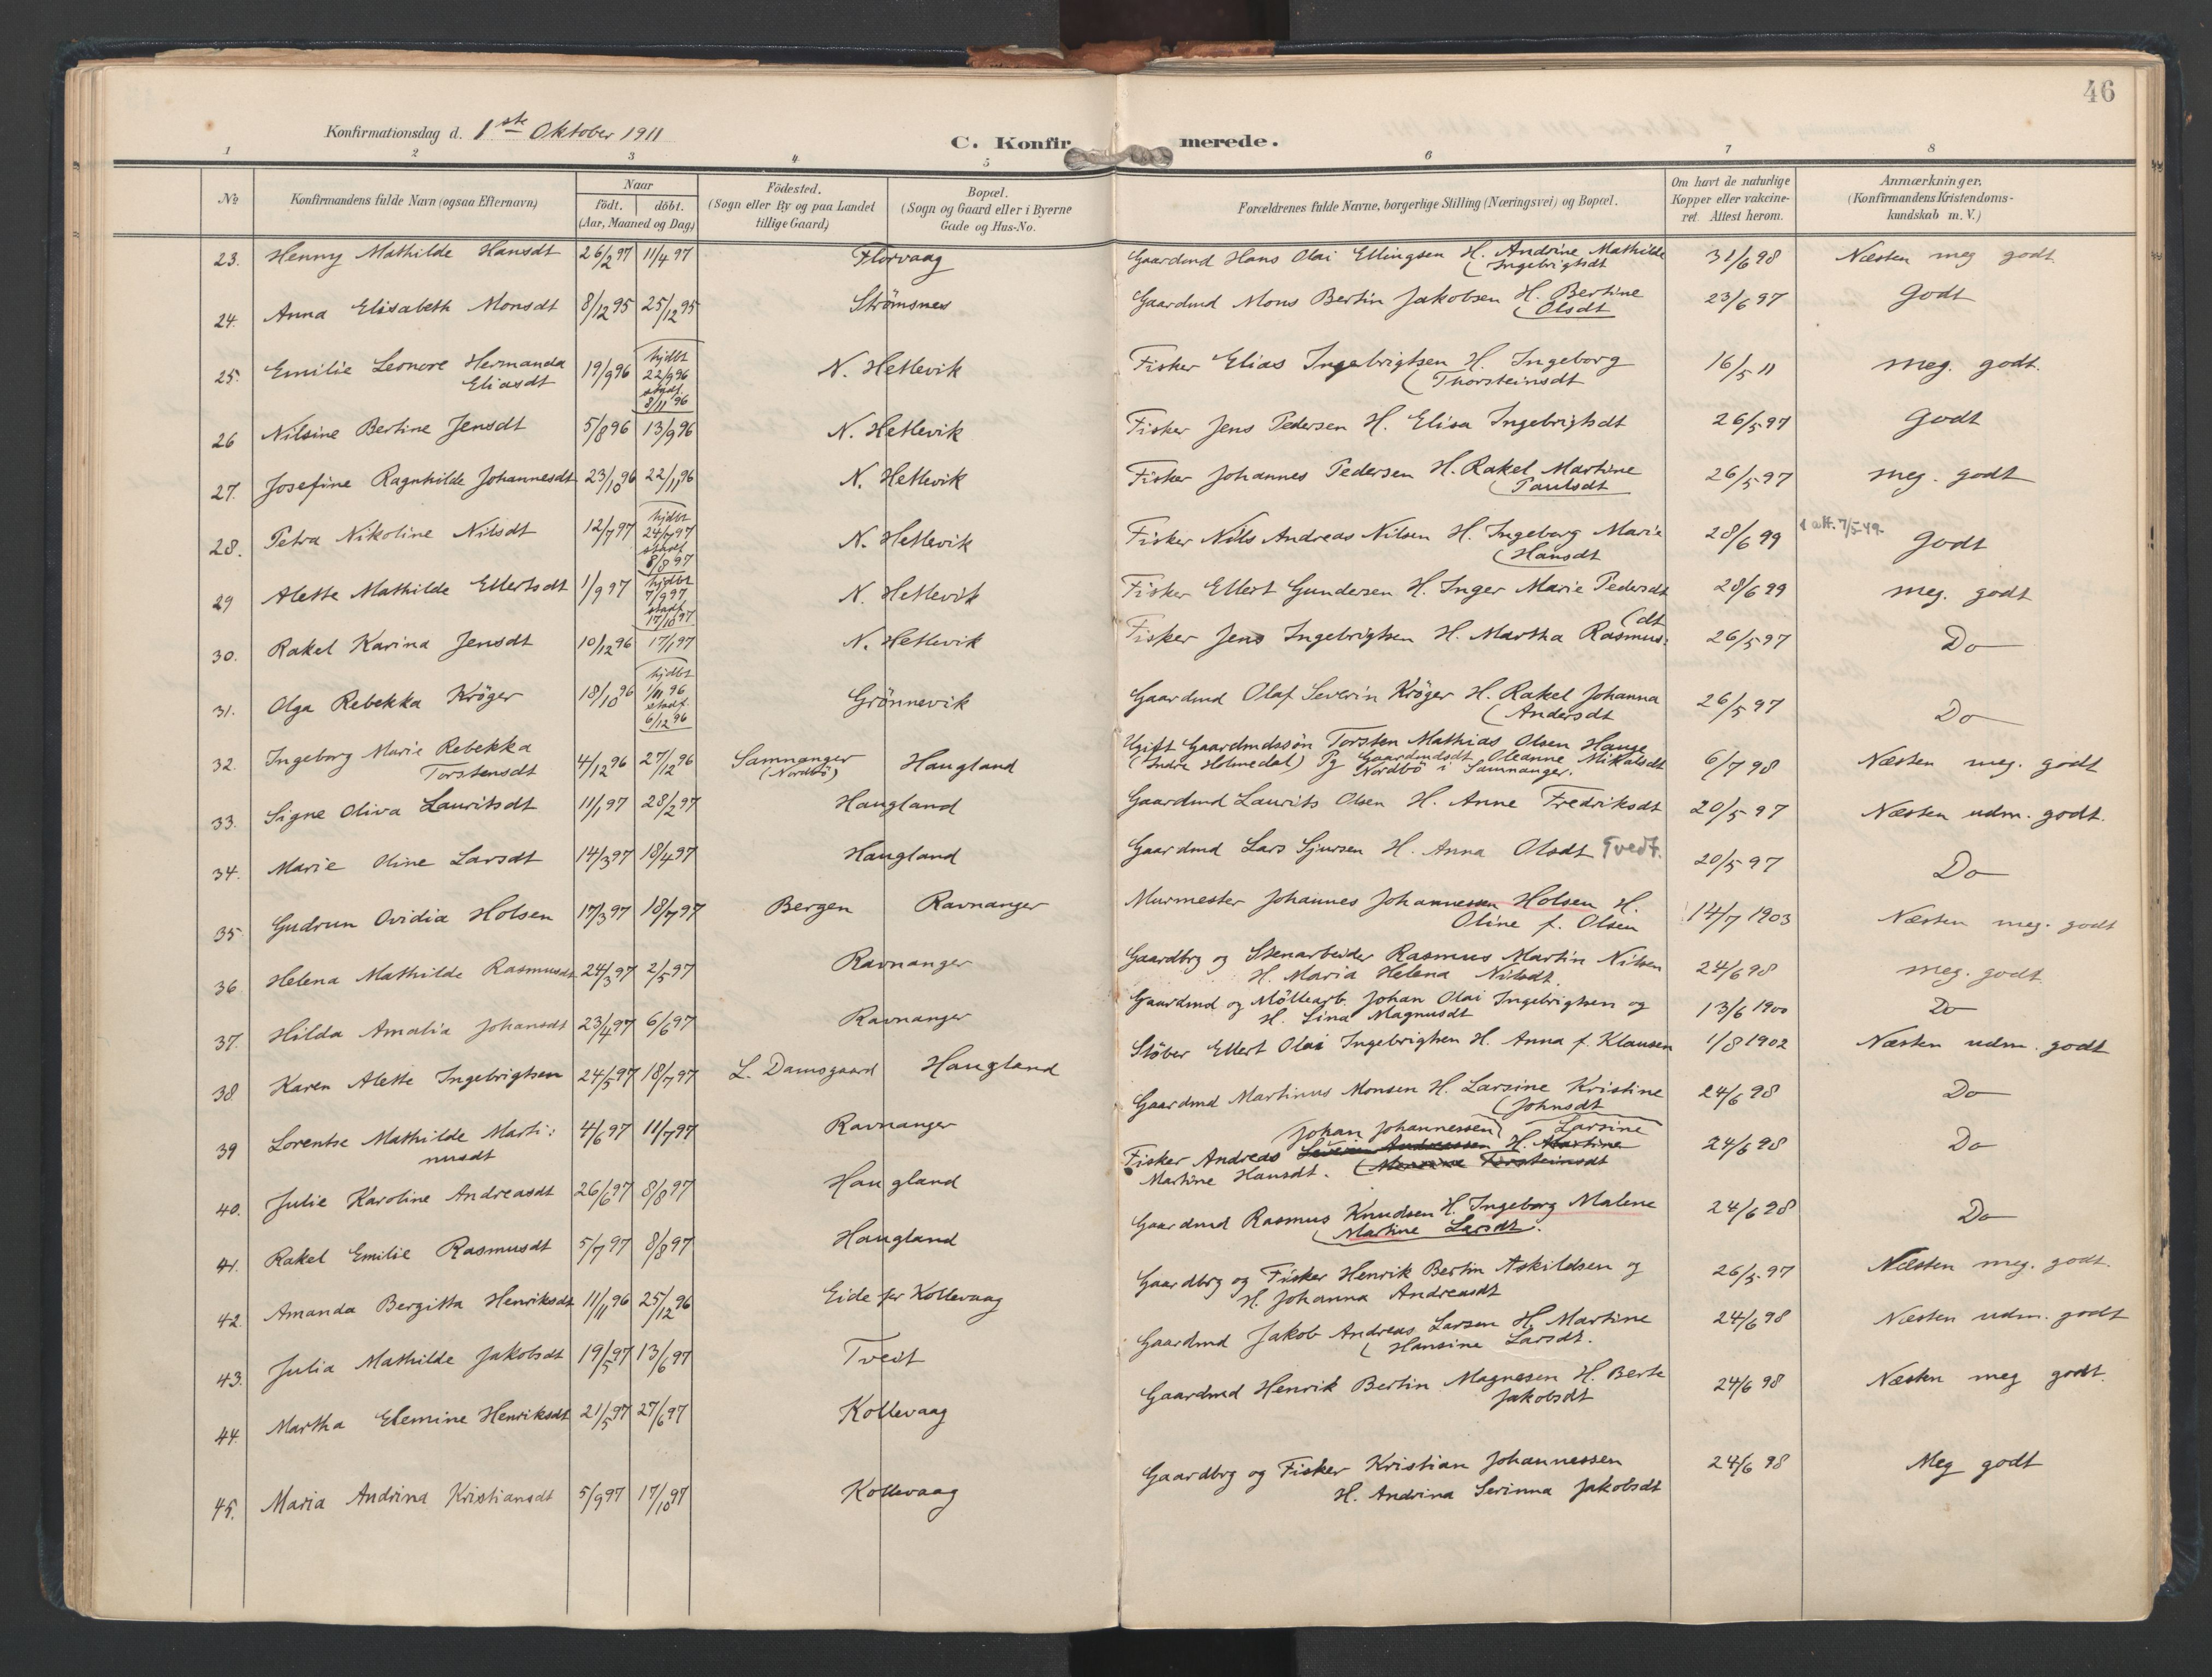 46
Konfirmationsdag d. 1ste Oktober 1911
C. Konfirmerede.
1 2 3 4 5 6 7 8
No Konfirmandens fulde Navn (ogsaa Efternavn) Naar födt. döbt. (Aar, Maaned og Dag) Födested. (Sogn eller By og paa Landet tillige Gaard) Bopæl. (Sogn og Gaard eller i Byerne Gade og Hus-No. Forældrenes fulde Navne, borgerlige Stilling (Næringsvei) og Bopæl. Om havt de naturlige Kopper eller vakcineret. Attest herom. Anmærkninger. (Konfirmandens Kristendomskundskab m. V.)
23. Henny Mathilde Hansdt 26/2 97 11/4 97 Florvaag Gaardmd Hans Olai Ellingsen H. Andrine Mathilde 31/6 98 Næsten meg godt.
(Ingebrigtsdt
24. Anna Elisabeth Monsdt 8/12 95 25/12 95 Strömsnes Gaardmd Mons Bertin Jakobsen H. Bertine 23/6 97 Godt
(Olsdt
25. Emilie Leonore Hermanda 19/9 96 hjdbt 22/9 96 stadf. 8/11 96 N. Hetlevik Fisker Elias Ingebrigtsen H. Ingeborg 16/5 11 meg. godt.
Eliasdt (Thorsteinsdt
26 Nilsine Bertine Jensdt 5/8 96 13/9 96 N. Hetlevik Fisker Jens Pedersen H. Elisa Ingebrigtsdt 26/5 97 Godt
27. Josefine Ragnhilde Johannesdt 23/10 96 22/11 96 N. Hetlevik Fisker Johannes Pedersen H. Rakel Martine 26/5 97 meg. godt
(Paulsdt
28. Petra Nikoline Nilsdt 12/7 97 hjdbt 24/7 97 stadf 8/8 97 N. Hetlevik Fisker Nils Andreas Nilsen H. Ingeborg Marie 28/6 99 1 att. 7/5-49. Godt
(Hansdt
29 Alette Mathilde Ellertsdt 1/9 97 hjdbt 7/9 97 stadf 17/10 97 N. Hetlevik Fisker Ellert Gundersen H. Inger Marie Pedersdt 28/6 99 meg. godt
(dt
30. Rakel Karina Jensdt 10/12 96 17/1 97 N. Hetlevik Fisker Jens Ingebrigtsen H. Martha Rasmus: 26/5 97 Do
31. Olga Rebekka Kröger 18/10 96 hjdbt 1/11 96 stadf. 6/12 96 Grönnevik Gaardmd Olaf Severin Kröger H. Rakel Johanna 26/5 97 Do
(Andersdt
32. Ingeborg Marie Rebekka 4/12 96 27/12 96 Samnanger Haugland Ugift Gaardmdssön Torsten Mathias Olsen Hauge 6/7 98 Næsten meg. godt
Torstensdt (Nordbö) (Indre Holmedal) Pg Gaardmdsdt Oleanne Mikalsdt
Nordbö i Samnanger.
33. Signe Oliva Lauritsdt 11/1 97 28/2 97 Haugland Gaardmd Laurits Olsen H. Anne Fredriksdt 20/5 97 Næsten udm. godt.
34. Marie Oline Larsdt 14/3 97 18/4 97 Haugland Gaardmd Lars Sjursen H. Anna Olsdt Tvedt. 20/5 97 Do
35 Gudrun Ovidia Holsen 17/3 97 18/7 97 Bergen Ravnanger Murmester Johannes Johannessen Holsen H. 14/7 1903 Næsten meg. godt
Oline f. Olsen
36. Helena Mathilde Rasmusdt 24/3 97 2/5 97 Ravnanger Gaardbrg og Stenarbeider Rasmus Martin Nilsen 24/6 98 meg. godt.
H. Maria Helena Nilsdt.
37. Hilda Amalia Johansdt 23/4 97 6/6 97 Ravnanger Gaardmd og Möllearb. Johan Olai Ingebrigtsen og 13/6 1900 Do
H. Lina Magnusdt
38 Karen Alette Ingebrigtsen 24/5 97 18/7 97 L. Damsgaard Haugland Stöber Ellert Olai Ingebrigtsen H. Anna f. Klausen 1/8 1902 Næsten udm. godt
39 Lorentse Mathilde Marti: 4/6 97 11/7 97 Ravnanger Gaardmd Martinus Monsen H. Larsine Kristine 24/6 98 Do
nusdt (Johnsdt
Johan Johannessen) Larsine
40. Julie Karoline Andreasdt 26/6 97 8/8 97 Haugland Fisker Andreas Severin Andreassen H. Martine 24/6 98 Do
Martine Hansdt. Torsteinsdt
41. Rakel Emilie Rasmusdt 5/7 97 8/8 97 Haugland Gaardmd Rasmus Knudsen H. Ingeborg Malene 24/6 98 Do
(Martine Larsdt.
42. Amanda Bergitta Henriksdt 11/11 96 25/12 96 Eide før Kollevaag Gaardbrg og Fisker Henrik Bertin Askildsen og 26/5 97 Næsten meg. godt.
H. Johanna Andreasdt
43. Julia Mathilde Jakobsdt 19/5 97 13/6 97 Tveit Gaardmd Jakob Andreas Larsen H. Martine 24/6 98 Næsten udm. godt
(Hansine Larsdt.
44. Martha Elemine Henriksdt 21/5 97 27/6 97 Kollevaag Gaardmd Henrik Bertin Magnesen H. Berte 24/6 98 Næsten meg godt.
Jakobsdt
45. Maria Andrina Kristiansdt 5/9 97 17/10 97 Kollevaag Gaardbrg og Fisker Kristian Johannessen 24/6 98 Meg godt
H. Andrina Serinna Jakobsdt